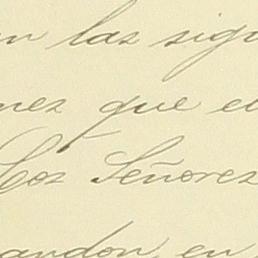 en las sigu
nes que el
Los Señores
andon, en